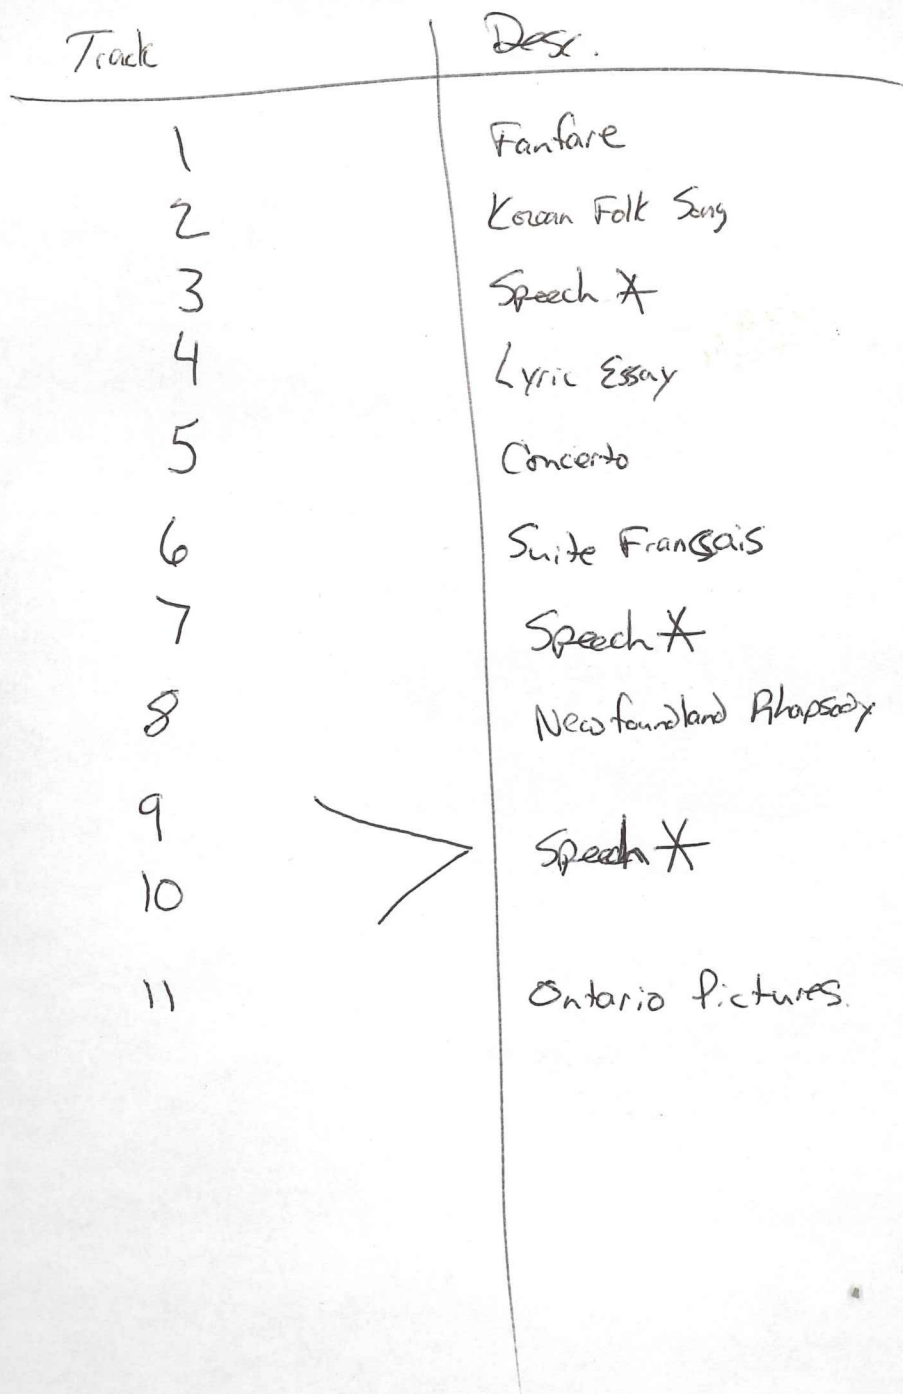 Track Desc.
1 Fanfare
2 Korean Folk Song
3 Speech *
4 Lyric Essay
5 Concerto
6 Suite Français
7 Speech *
8 Newfoundland Rhapsody
9
Speech *
10
11 Ontario Pictures.